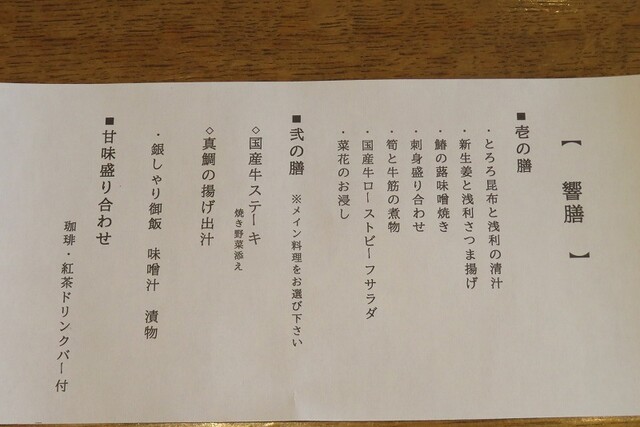 【 響膳 】
■壱の膳
・とろろ昆布と浅利の清汁
・新生姜と浅利さつま揚げ
・鰆の蕗味噌焼き
・刺身盛り合わせ
・筍と牛筋の煮物
・国産牛ローストビーフサラダ
・菜花のお浸し
■弐の膳 ※メイン料理をお選び下さい
◇国産牛ステーキ
焼き野菜添え
◇真鯛の揚げ出汁
・銀しゃり御飯 味噌汁 漬物
■甘味盛り合わせ
珈琲・紅茶ドリンクバー付